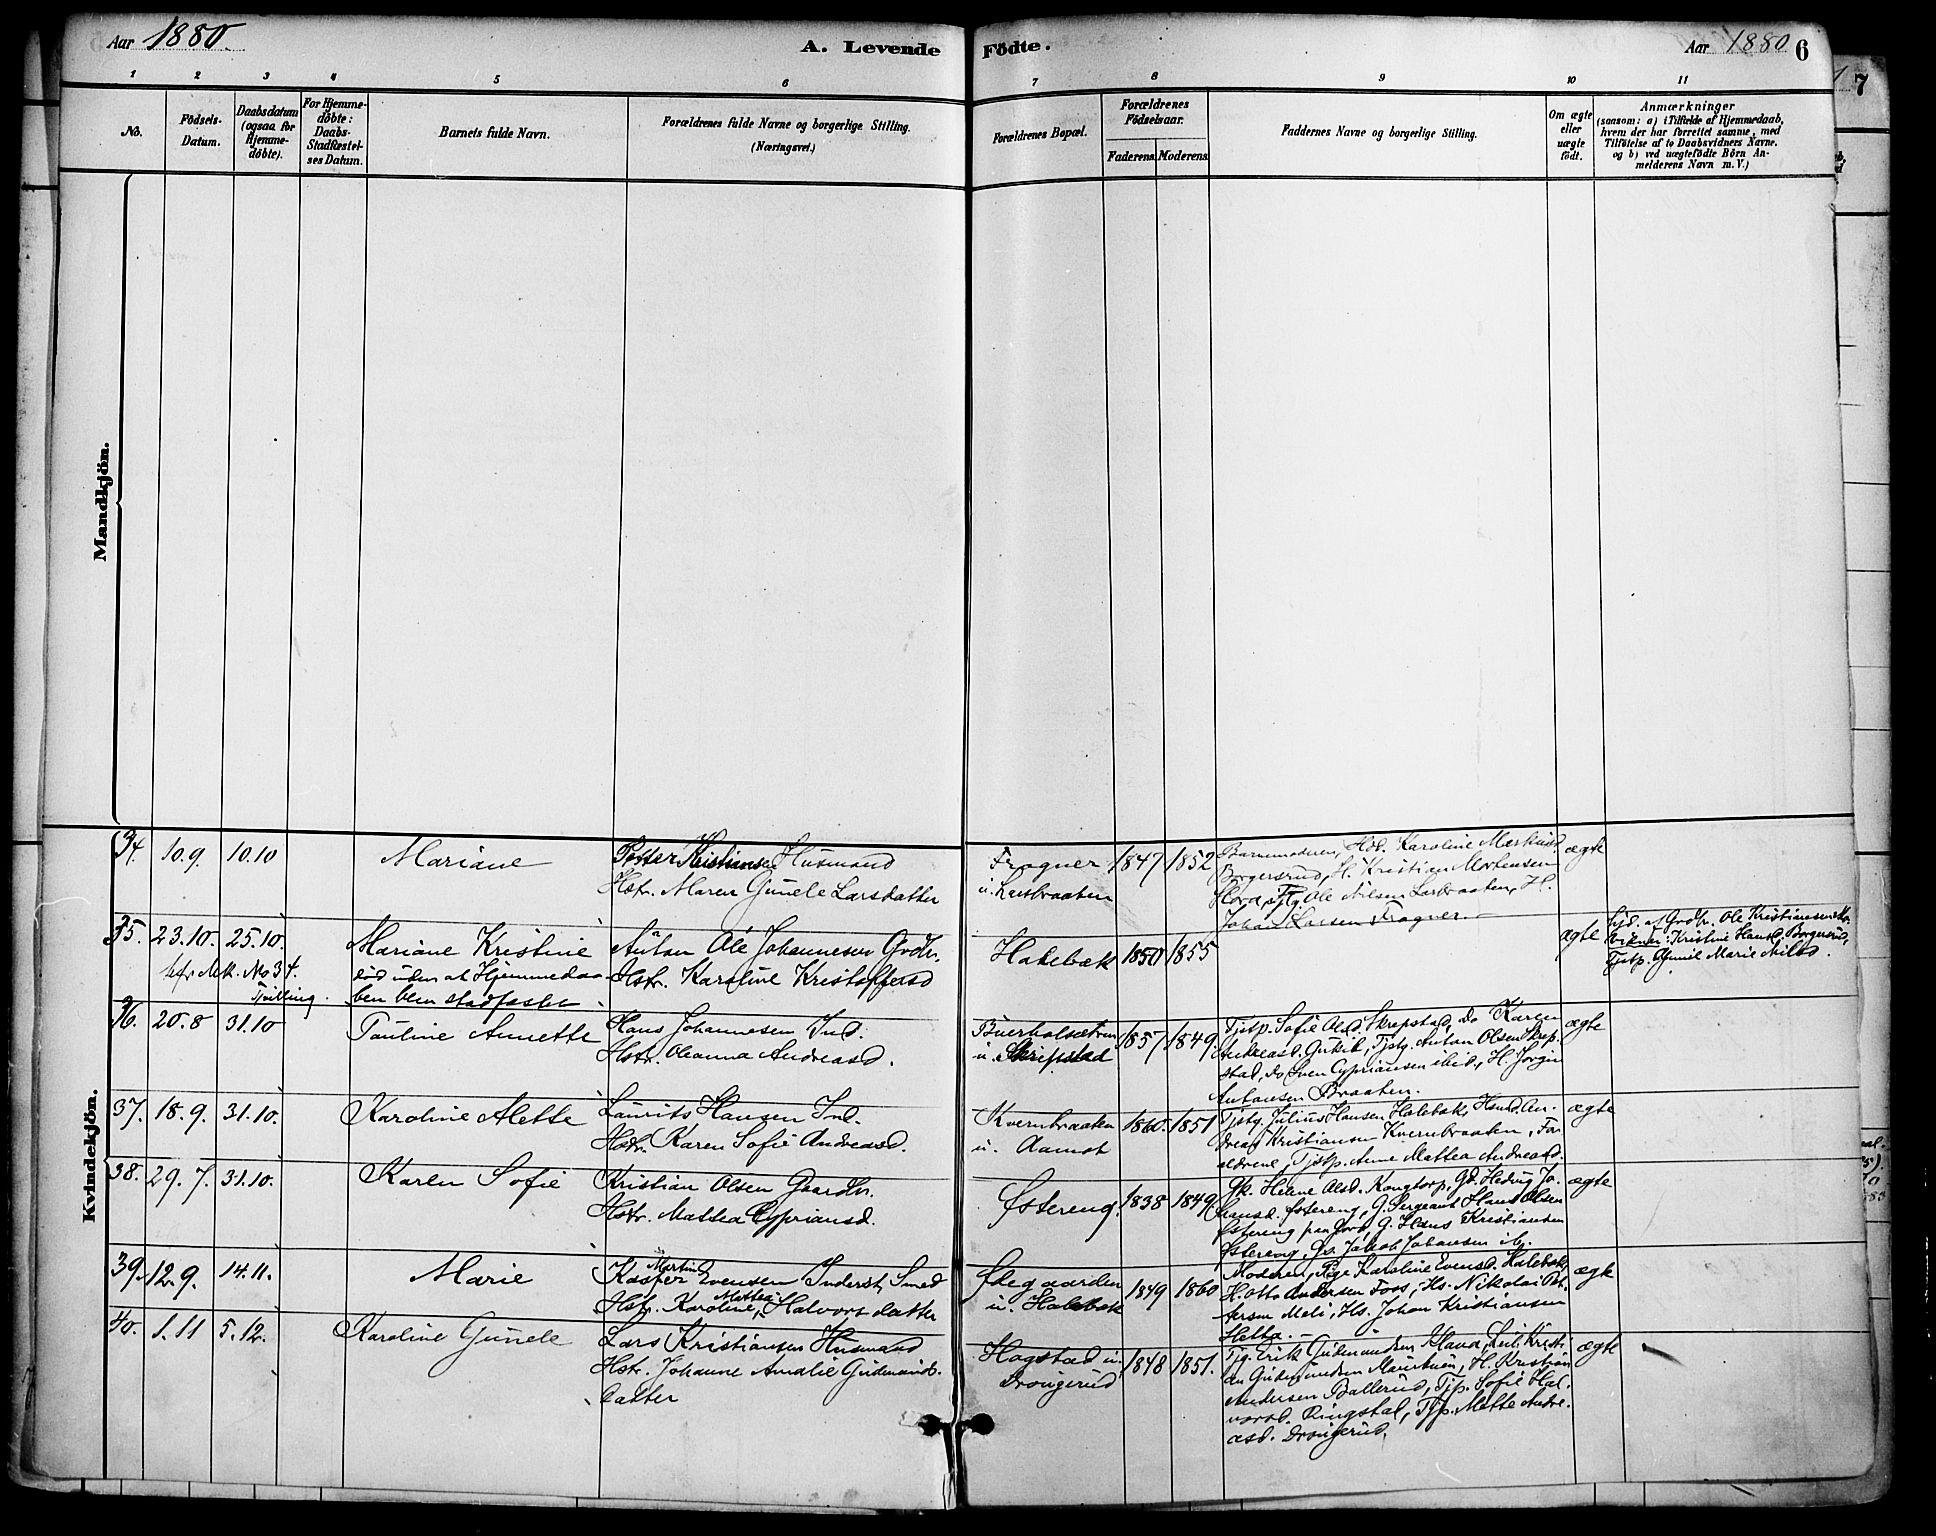 Aar 1880.
A. Levende Födte.
Aar 1880 6
7
1 2 3 4 5 6 7 8 9 10 11
No.
Födsels-
Datum.
Daabsdatum
(ogsaa for
Hjemme-
döbte).
For Hjemme-
döbte:
Daabs-
Stadfæstel-
ses Datum.
Barnets fulde Navn.
Forældrenes fulde Navne og borgerlige Stilling.
(Næringsvei.)
Forældrenes Bopæl.
Forældrenes
Födselsaar.
Faderens. Moderens.
Faddernes Navne og borgerlige Stilling.
Om ægte
eller
uægte
födt.
Anmærkninger
(saasom: a) i Tilfælde af Hjemmedaab,
hvem der har forrettet samme, med
Tilföielse af to Daabsvidners Navne.
og b) ved uægtefödte Börn An-
melderens Navn m. V.)
Mandkjön.
Kvindekjön.
34. 10.9. 10.10 Mariane
Petter Kristiansen Husmand
Hstr. Maren Gunele Larsdatter
Frogner
u. Larsbraaten
1847 1852
Barnemoderen, Hd. Karoline
Borgersrud, H. Kristian Mortensen
Ole Nilsen Larsbraaten, H.
Johan Larsen Frogner.
ægte
35. 23.10. 25.10.
No 34.
Tvilling.
Mariane Kristine
død uden at Hjemmedaa-
ben blev stadfæstet
Anton Ole Johannesen Grdbr.
Hstr. Karoline Kristoffersd
Halebæk 1850 1855
ægte
Hjd. af Grdbr. Ole Kristiansen
Vidner: Kristine Hansd. Borgersrud,
Tjstp. Gunil Marie Nilsd.
36. 20.8 31.10 Pauline Annette
Hans Johannesen Ind.
Hstr. Oleanna Andreasd.
u. Skripstad
1857 1849
Tjstp. Sofie Olsd. Skrepstad, Do Karen
Andreasd. Tjstg. Anton Olsen Skrep-
stad, Do Sven Cypriansen ibid., H. Jørgen
Antonsen Braaten.
ægte
37. 18.9. 31.10. Karoline Alette
Laurits Hansen Ind.
Hstr. Karen Sofie Andreasd.
Kvernbraaten
u. Aamot
1860. 1851
Tjstg. Julius Hansen Halebæk, Hsmd. An-
dreas Kristiansen Kvernbraaten, For-
ældrene, Tjstp. Anne Mattea Andreasd.
ægte
38. 29.7. 31.10. Karen Sofie
Kristian Olsen Gaardbr.
Hstr. Mattea Cypriansd.
Østereng. 1838 1849
Gk. Helene Olsd. Kongtorp, Gd. Hedvig Jo-
hansd. Østereng, G. Sergeant Hans Olsen
Østereng paa Jord, G. Hans Kristiansen
Østereng, Gs. Jakob Johansen ib.
ægte
39. 12.9. 14.11. Marie
Kasper Martin Evensen Inderst, Smed
Hstr. Karoline Mattea Halvorsdatter
Ødegaarden
u. Halebæk
1849 1860
Moderen, Pige Karoline Evensd. Halebæk,
H. Otto Andersen Foss, Hs. Nikolai Pet-
tersen Meli, Hs. Johan Kristiansen
ægte
40. 1.11 5.12. Karoline Gunele
Lars Kristiansen Husmand
Hstr. Johanne Amalie Gudmunds-
datter
Hogstad u.
Drougerud
1848 1851.
Tjg. Erik Gudmundsen Kristi-
an Gudmundsen H. Kristian
Andersen Ballerud, Tjp. Sofie Hal-
vorsd. Ringstad, Tjp. Mette Andre-
asd. Drougerud.
ægte